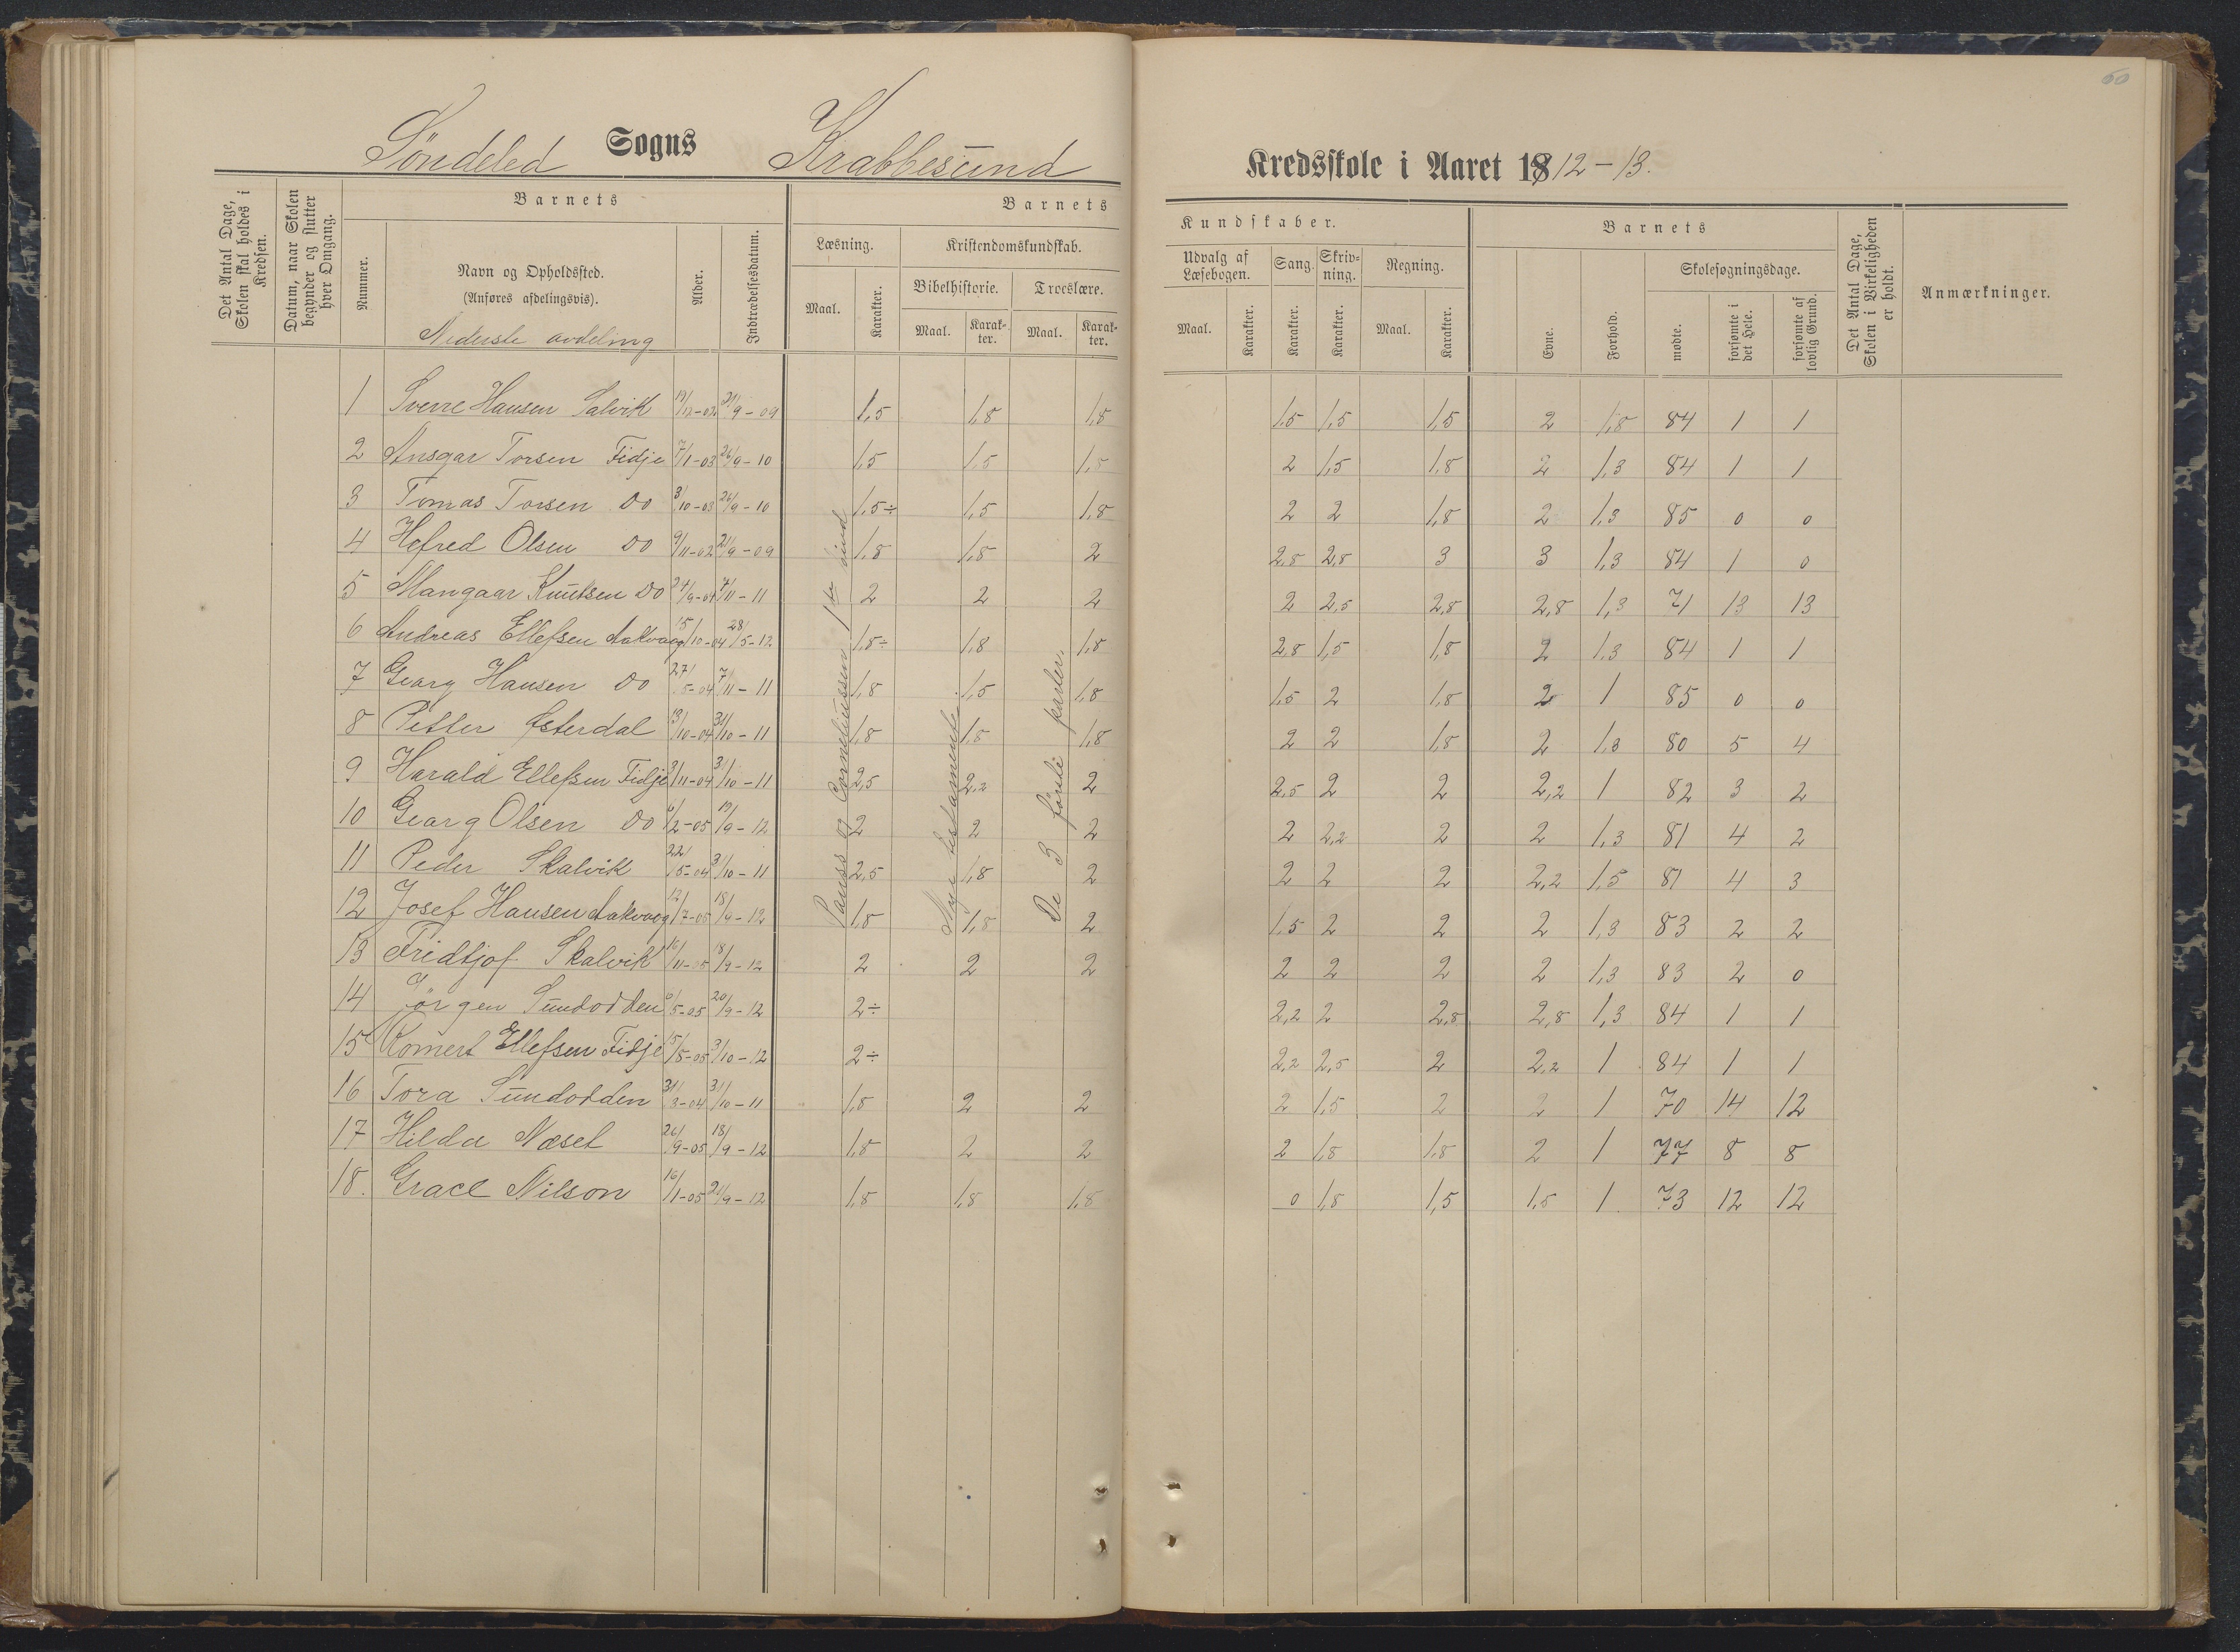 60
Söndeled Sogns Krabbesund Kredsskole i Aaret 1912-13.
Det Antal Dage, Skolen skal holdes i Kredsen.
Datum, naar Skolen begynder og slutter hver Omgang.
Barnets
Nummer.
Navn og Opholdssted.
(Anføres afdelingsvis).
Nederste avdeling
Alder.
Indtrædelsesdatum.
Barnets Kundskaber.
Læsning.
Maal.
Karakter.
Kristendomskundskab.
Bibelhistorie.
Maal.
Karakter.
Troeslære.
Maal.
Karakter.
Udvalg af Læsebogen.
Maal.
Karakter.
Sang.
Karakter.
Skrivning.
Karakter.
Regning.
Maal.
Karakter.
Barnets
Evne.
Forhold.
Skolesøgningsdage.
mødte.
forsømte i det Hele.
forsømte af lovlig Grund.
Det Antal Dage, Skolen i Virkeligheden er holdt.
Anmærkninger.
1 Sverre Hansen Salvik 19/12-02 21/9-09 1,5 1,8 1,8 1,5 1,5 1,5 2 1,8 84 1 1
2 Ansgar Torsen Fidje 7/1-03 26/9-10 1,5 1,5 1,5 2 1,5 1,8 2 1,3 84 1 1
3 Tomas Torsen Do 3/10-03 26/9-10 1,5÷ 1,5 1,8 2 2 1,8 2 1,3 85 0 0
4 Hefred Olsen Do 9/11-02 21/9-09 1,8 1,8 2 2,8 2,8 3 3 1,3 84 1 0
5 Mangaar Knutsen Do 24/9-04 7/11-11 2 2 2 2 2,5 2,8 2,8 1,3 71 13 13
6 Andreas Ellefsen Aakvaag 15/10-04 28/5-12 1,8÷ 1,8 1,8 2,8 1,5 1,8 2 1,3 84 1 1
7 Georg Hansen Do 27/5-04 7/11-11 1,8 1,5 1,8 1,5 2 1,8 2 1 85 0 0
8 Petter Østerdal 13/10-04 31/10-11 1,8 1,8 1,8 2 2 1,8 2 1,3 80 5 4
9 Harald Ellefsen Fidje 3/11-04 31/10-11 2,5 2,2 2 2,5 2 2 2,2 1 82 3 2
10 Georg Olsen Do 6/2-05 19/9-12 2 2 2 2 2,2 2 2 1,3 81 4 2
11 Peder Skalvik 22/5-04 3/10-11 2,5 1,8 2 2 2 2 2,2 1,5 81 4 3
12 Josef Hansen Aakvaag 12/7-05 18/9-12 1,8 1,8 2 1,5 2 2 2 1,3 83 2 2
13 Fridtjof Skalvik 16/11-05 18/9-12 2 2 2 2 2 2 2 1,3 83 2 0
14 Jörgen Sundodden 6/5-05 20/9-12 2÷ 2,2 2 2,8 2,8 1,3 84 1 1
15 Romert Ellefsen Fidje 15/5-05 3/10-12 2÷ 2,2 2,5 2 2,2 1 84 1 1
16 Tora Sundodden 31/3-04 31/10-11 1,8 2 2 2 1,5 2 2 1 70 14 12
17 Hilda Næset 26/9-05 18/9-12 1,8 2 2 2 1,8 1,8 2 1 77 8 8
18. Grace Nilson 16/1-05 21/9-12 1,8 1,8 1,8 0 1,8 1,5 1,5 1 73 12 12
Pauss og Corneliussen 1ste bind
Nye testamente
De 3 første parter.